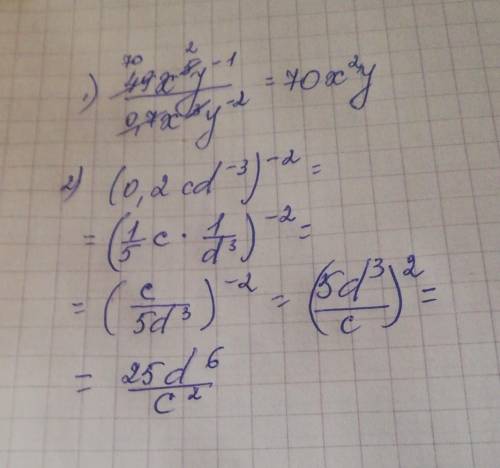 1.) 49x⁻⁵y⁻¹ / 0,7x⁻³y⁻² = 70x²y
2) (0,2 cd⁻³)⁻² =
= (1/5 c · 1/d³)⁻² =
= (c / 5d³)⁻² = (5d³ / c)² =
= 25d⁶ / c²